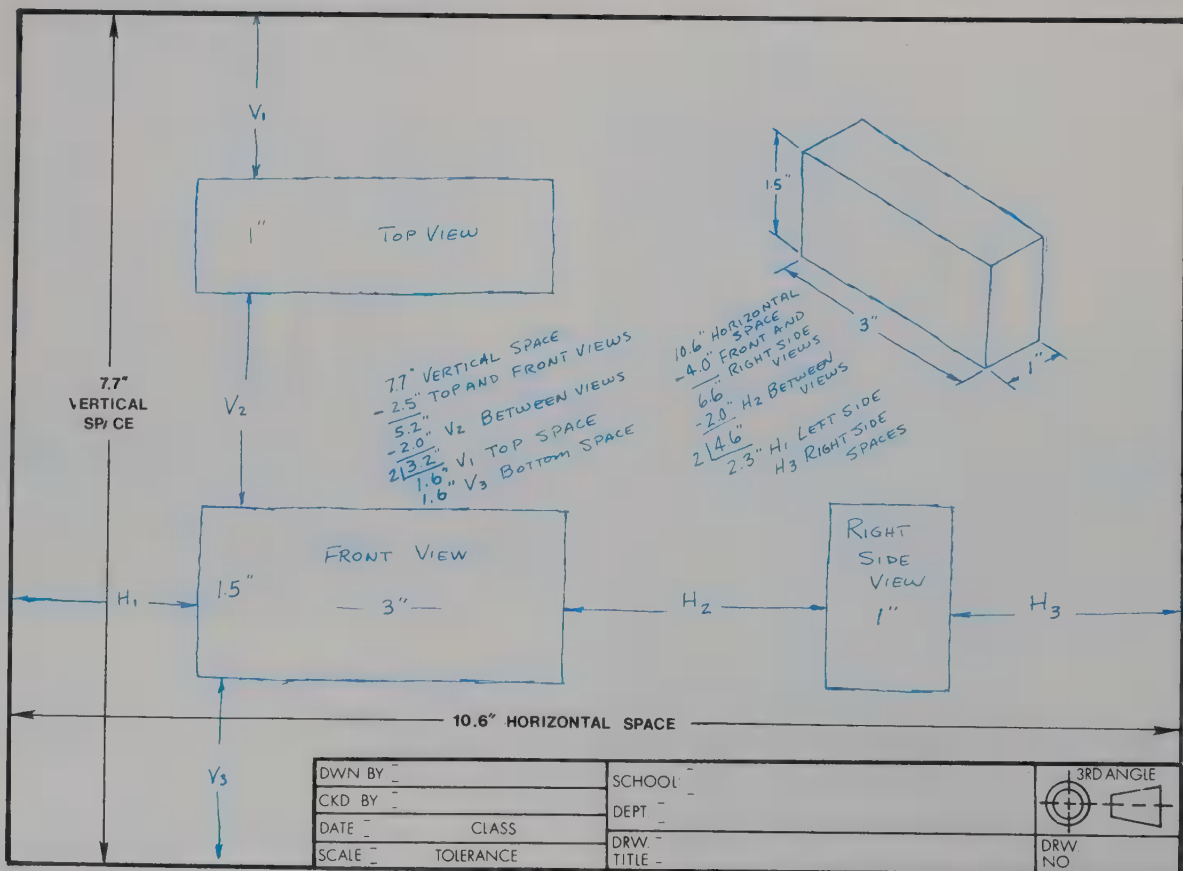 V₁
1"
TOP VIEW
1.5"
3"
1"
7.7"
VERTICAL
SPACE
V₂
7.7" VERTICAL SPACE
- 2.5" TOP AND FRONT VIEWS
5.2"
-2.0" V₂ BETWEEN VIEWS
2⌊3.2"
1.6" V₁ TOP SPACE
1.6" V₃ BOTTOM SPACE
10.6" HORIZONTAL
SPACE
-4.0" FRONT AND
RIGHT SIDE
VIEWS
6.6"
-2.0" H₂ BETWEEN
VIEWS
2⌊4.6"
2.3" H₁ LEFT SIDE
H₃ RIGHT SIDE
SPACES
H₁
1.5"
FRONT VIEW
3"
H₂
RIGHT
SIDE
VIEW
1"
H₃
10.6" HORIZONTAL SPACE
V₃
DWN BY -
CKD BY -
DATE - CLASS
SCALE - TOLERANCE
SCHOOL -
DEPT -
DRW. -
TITLE -
3RD ANGLE
DRW.
NO